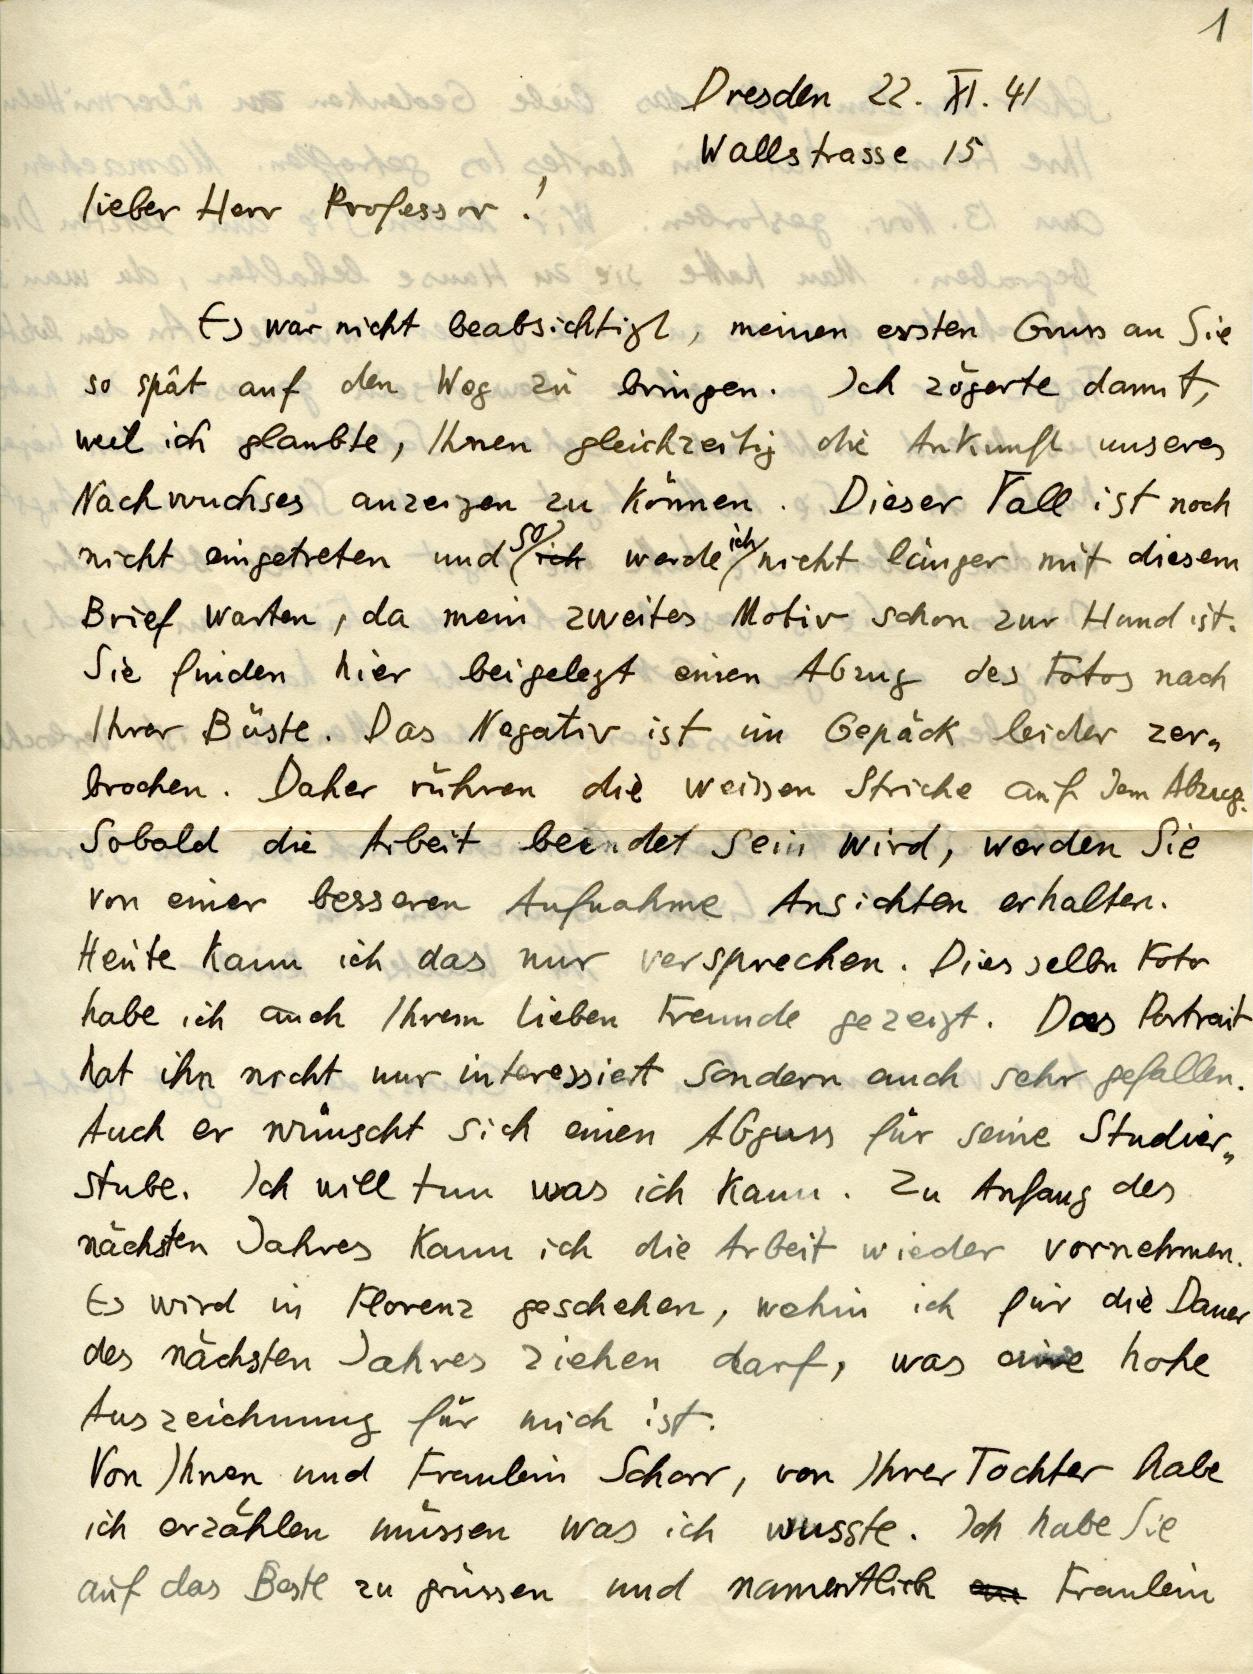 1
Dresden 22. XI. 41
Wallstrasse 15
lieber Herr Professor!
Es war nicht beabsichtigt, meinen ersten Gruss an Sie
so spät auf den Weg zu bringen. Ich zögerte damit,
weil ich glaubte, Ihnen gleichzeitig die Ankunft unseres
Nachwuchses anzeigen zu können. Dieser Fall ist noch
nicht eingetreten und so ich werde ich nicht länger mit diesem
Brief warten, da mein zweites Motiv schon zur Hand ist.
Sie finden hier beigelegt einen Abzug des Fotos nach
Ihrer Büste. Das Negativ ist im Gepäck leider zer„
brochen. Daher rühren die weissen Striche auf dem Abzug.
Sobald die Arbeit beendet sein wird, werden Sie
von einer besseren Aufnahme Ansichten erhalten.
Heute kann ich das nur versprechen. Dies selbe Foto
habe ich auch Ihrem lieben Freunde gezeigt. Das Portrait
hat ihn nicht nur interessiert sondern auch sehr gefallen.
Auch er wünscht sich einen Abguss für seine Studier„
stube. Ich will tun was ich kann. Zu Anfang des
nächsten Jahres kann ich die Arbeit wieder vornehmen.
Es wird in Florenz geschehen, wohin ich für die Dauer
des nächsten Jahres ziehen darf, was eine hohe
Auszeichnung für mich ist.
Von Ihnen und Fraulein Schorr, von Ihrer Tochter habe
ich erzählen müssen was ich wusste. Ich habe Sie
auf das Beste zu grüssen und namentlich Fraulein